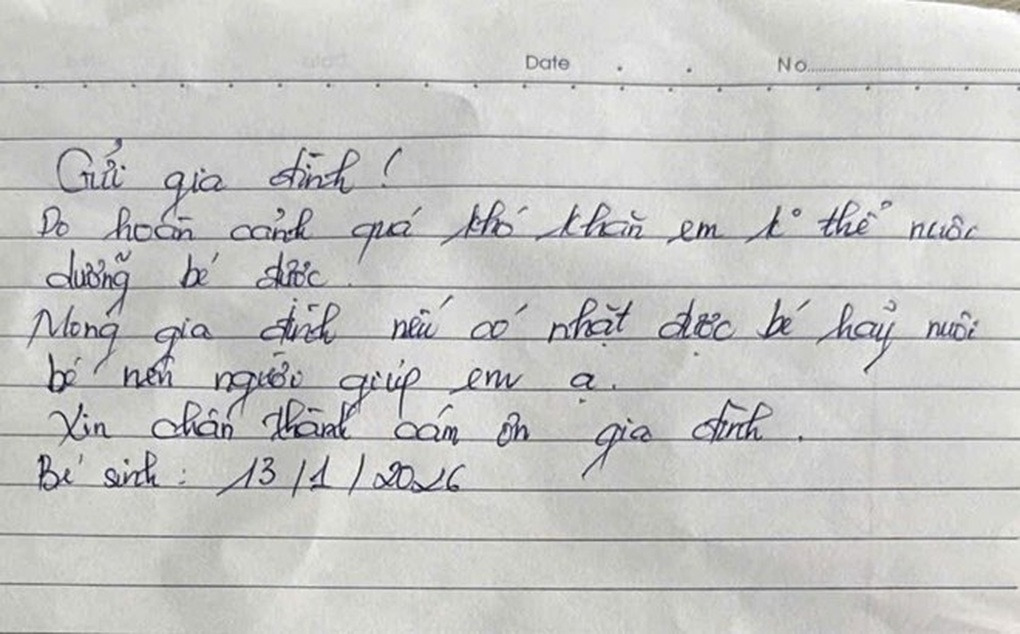 Date . . No.....................
Gửi gia đình!
Do hoàn cảnh quá khó khăn em k° thể nuôi
dưỡng bé được.
Mong gia đình nếu có nhặt được bé hãy nuôi
bé nên người giúp em ạ.
Xin chân thành cám ơn gia đình.
Bé sinh: 13/1/2026